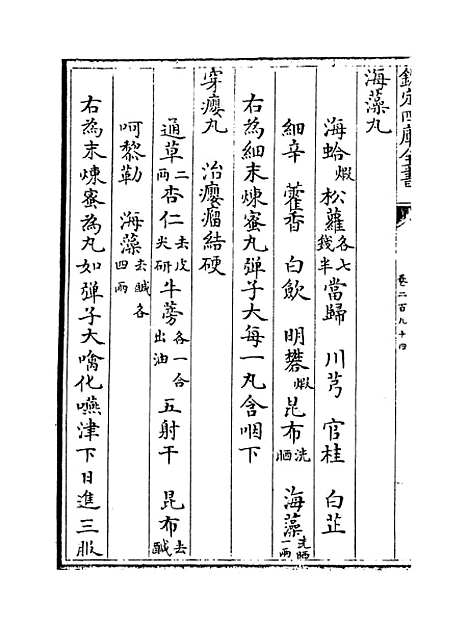 欽定四庫全書
卷二百九十四
海藻丸
海蛤煅 松蘿各七錢半 當歸 川芎 官桂 白芷
細辛 藿香 白蘞 明礬煅 昆布洗晒 海藻洗晒一兩
右為細末煉蜜丸彈子大每一丸含咽下
穿癭丸 治癭瘤結硬
通草二兩 杏仁去皮尖研 牛蒡各一合出油 五射干 昆布去鹹
呵黎勒 海藻去鹹各四兩
右為末煉蜜為丸如彈子大噙化嚥津下日進三服